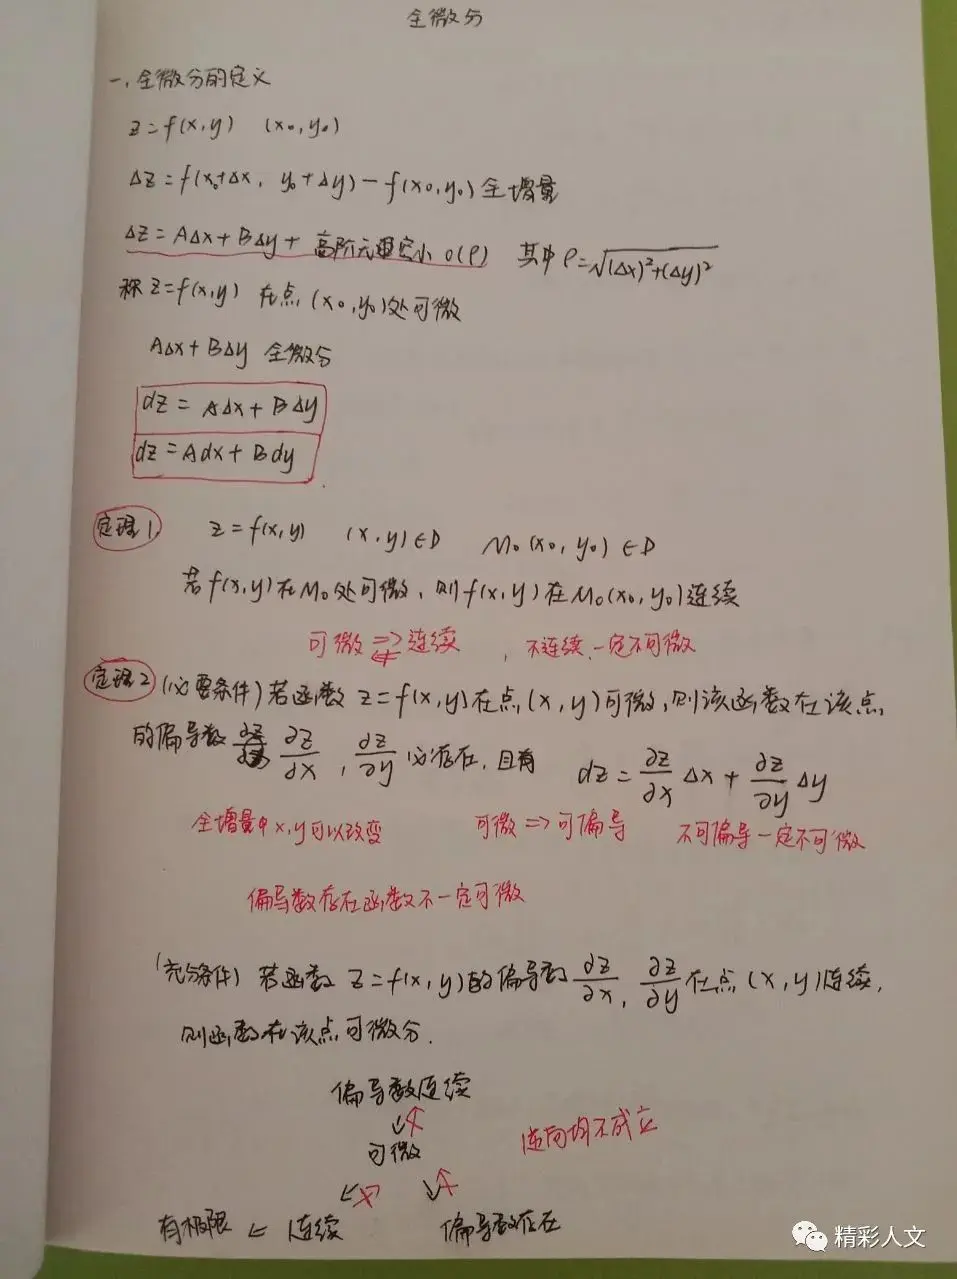 全微分
一、全微分的定义
z=f(x,y) (x₀,y₀)
Δz=f(x₀+Δx, y₀+Δy)-f(x₀,y₀)全增量
Δz=AΔx+BΔy+高阶无穷小 o(ρ) 其中ρ=√(Δx)²+(Δy)²
称z=f(x,y) 在点(x₀,y₀)处可微
AΔx+BΔy 全微分
dz=AΔx+BΔy
dz=Adx+Bdy
定理1. z=f(x,y) (x,y)∈D M₀(x₀,y₀)∈D
若f(x,y)在M₀处可微,则f(x,y)在M₀(x₀,y₀)连续
可微⇒连续,不连续一定不可微
定理2(必要条件)若函数z=f(x,y)在点(x,y)可微,则该函数在该点
的偏导数 ∂z/∂x, ∂z/∂y 必存在,且有 dz=∂z/∂x Δx+∂z/∂y Δy
全增量中x,y可以改变 可微⇒可偏导 不可偏导一定不可微
偏导数存在函数不一定可微
(充分条件)若函数z=f(x,y)的偏导数∂z/∂x, ∂z/∂y在点(x,y)连续,
则函数在该点可微分.
偏导数连续
可微 逆向均不成立
有极限 ← 连续 偏导数存在
精彩人文